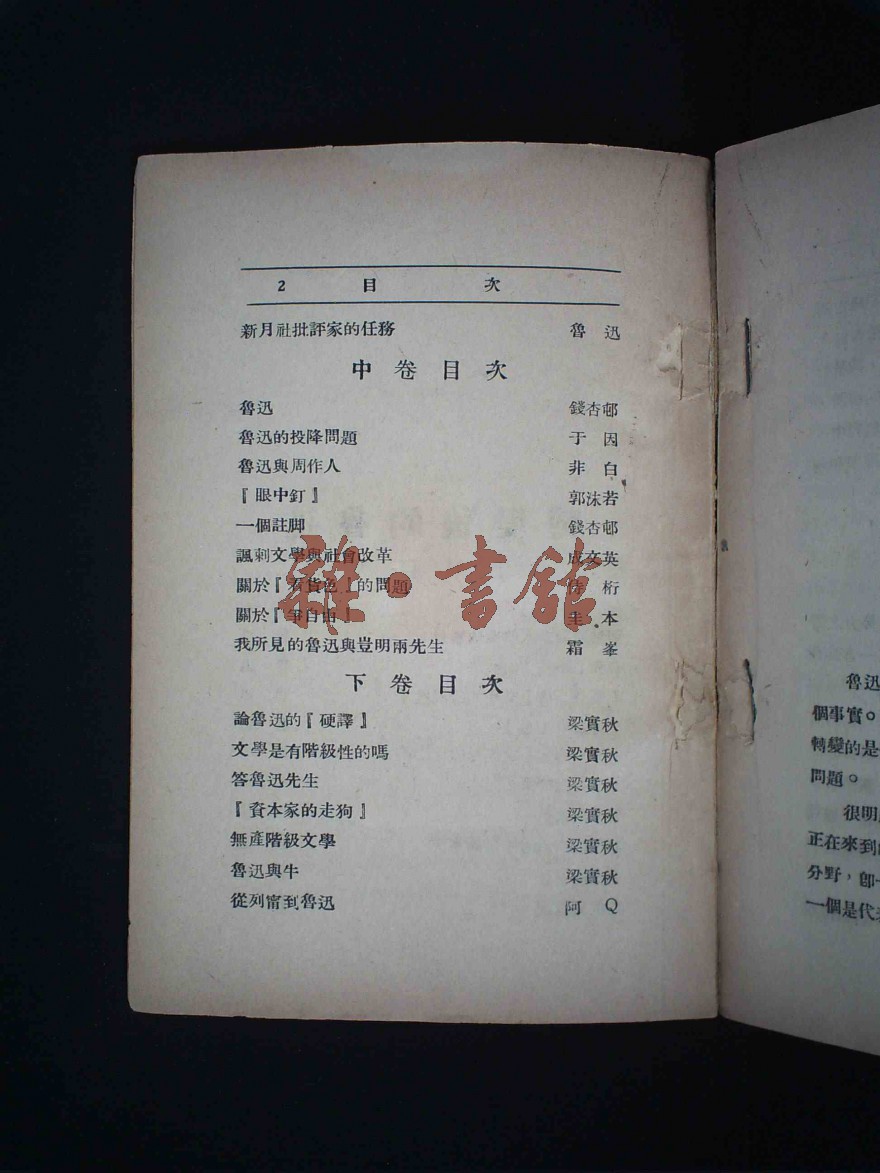 2 目 次
新月社批評家的任務 魯 迅
中 卷 目 次
魯迅 錢杏邨
魯迅的投降問題 于 因
魯迅與周作人 非 白
『眼中釘』 郭沫若
一個註脚 錢杏邨
諷刺文學與社會改革 成文英
關於『有貨色』的問題 侍 桁
關於『爭自由』 圭 本
我所見的魯迅與豈明兩先生 霜 峯
下 卷 目 次
論魯迅的『硬譯』 梁實秋
文學是有階級性的嗎 梁實秋
答魯迅先生 梁實秋
『資本家的走狗』 梁實秋
無產階級文學 梁實秋
魯迅與牛 梁實秋
從列甯到魯迅 阿 Q
雜·書館
魯迅
個事實。
轉變的是一
問題。
很明
正在來到
分野，卽一
一個是代表